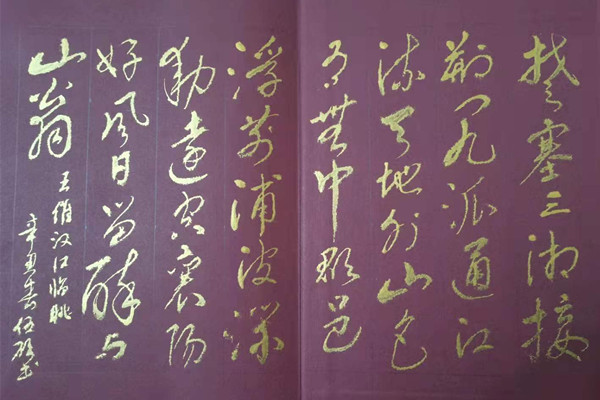 楚塞三湘接
荆门九派通江
流天地外山色
有無中郡邑
浮前浦波澜
動遠空襄陽
好风日留醉与
山翁
王维汉江临眺
辛丑春
书